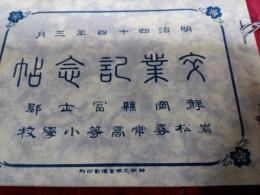 明治四十四年三月
卒業記念帖
静岡縣富士郡
岩松尋常高等小學校